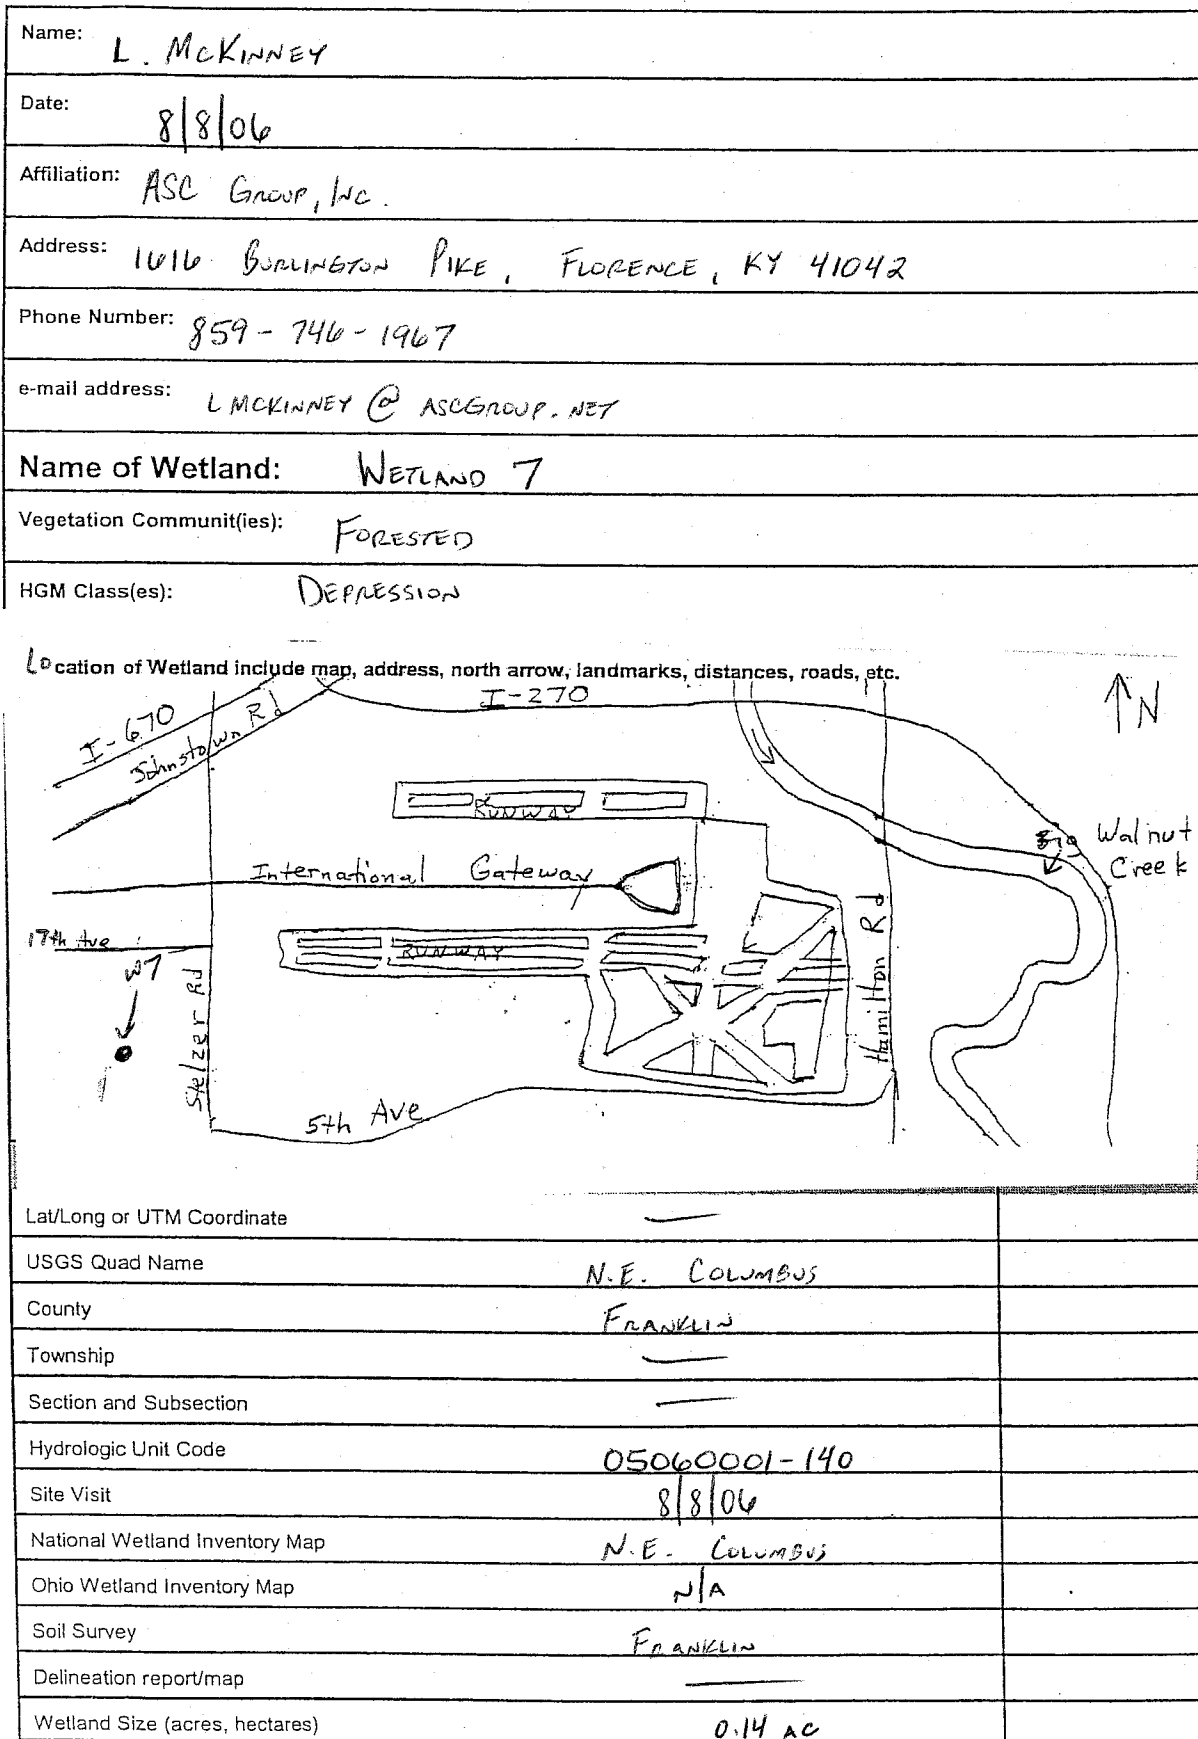 Name: L. McKinney
Date: 8/8/06
Affiliation: ASC Group, Inc.
Address: 1616 Burlington Pike, Florence, KY 41042
Phone Number: 859-746-1967
e-mail address: LMCKINNEY @ ASCGROUP.NET
Name of Wetland: Wetland 7
Vegetation Communit(ies): Forested
HGM Class(es): Depression
Location of Wetland include map, address, north arrow, landmarks, distances, roads, etc.
I-270
N
I-670
Johnstown Rd
RUNWAY
Big Walnut
Creek
International Gateway
17th Ave
RUNWAY
W7
Stelzer Rd
Hamilton Rd
5th Ave
Lat/Long or UTM Coordinate —
USGS Quad Name N.E. Columbus
County Franklin
Township —
Section and Subsection —
Hydrologic Unit Code 05060001-140
Site Visit 8/8/06
National Wetland Inventory Map N.E. Columbus
Ohio Wetland Inventory Map N/A
Soil Survey Franklin
Delineation report/map —
Wetland Size (acres, hectares) 0.14 AC